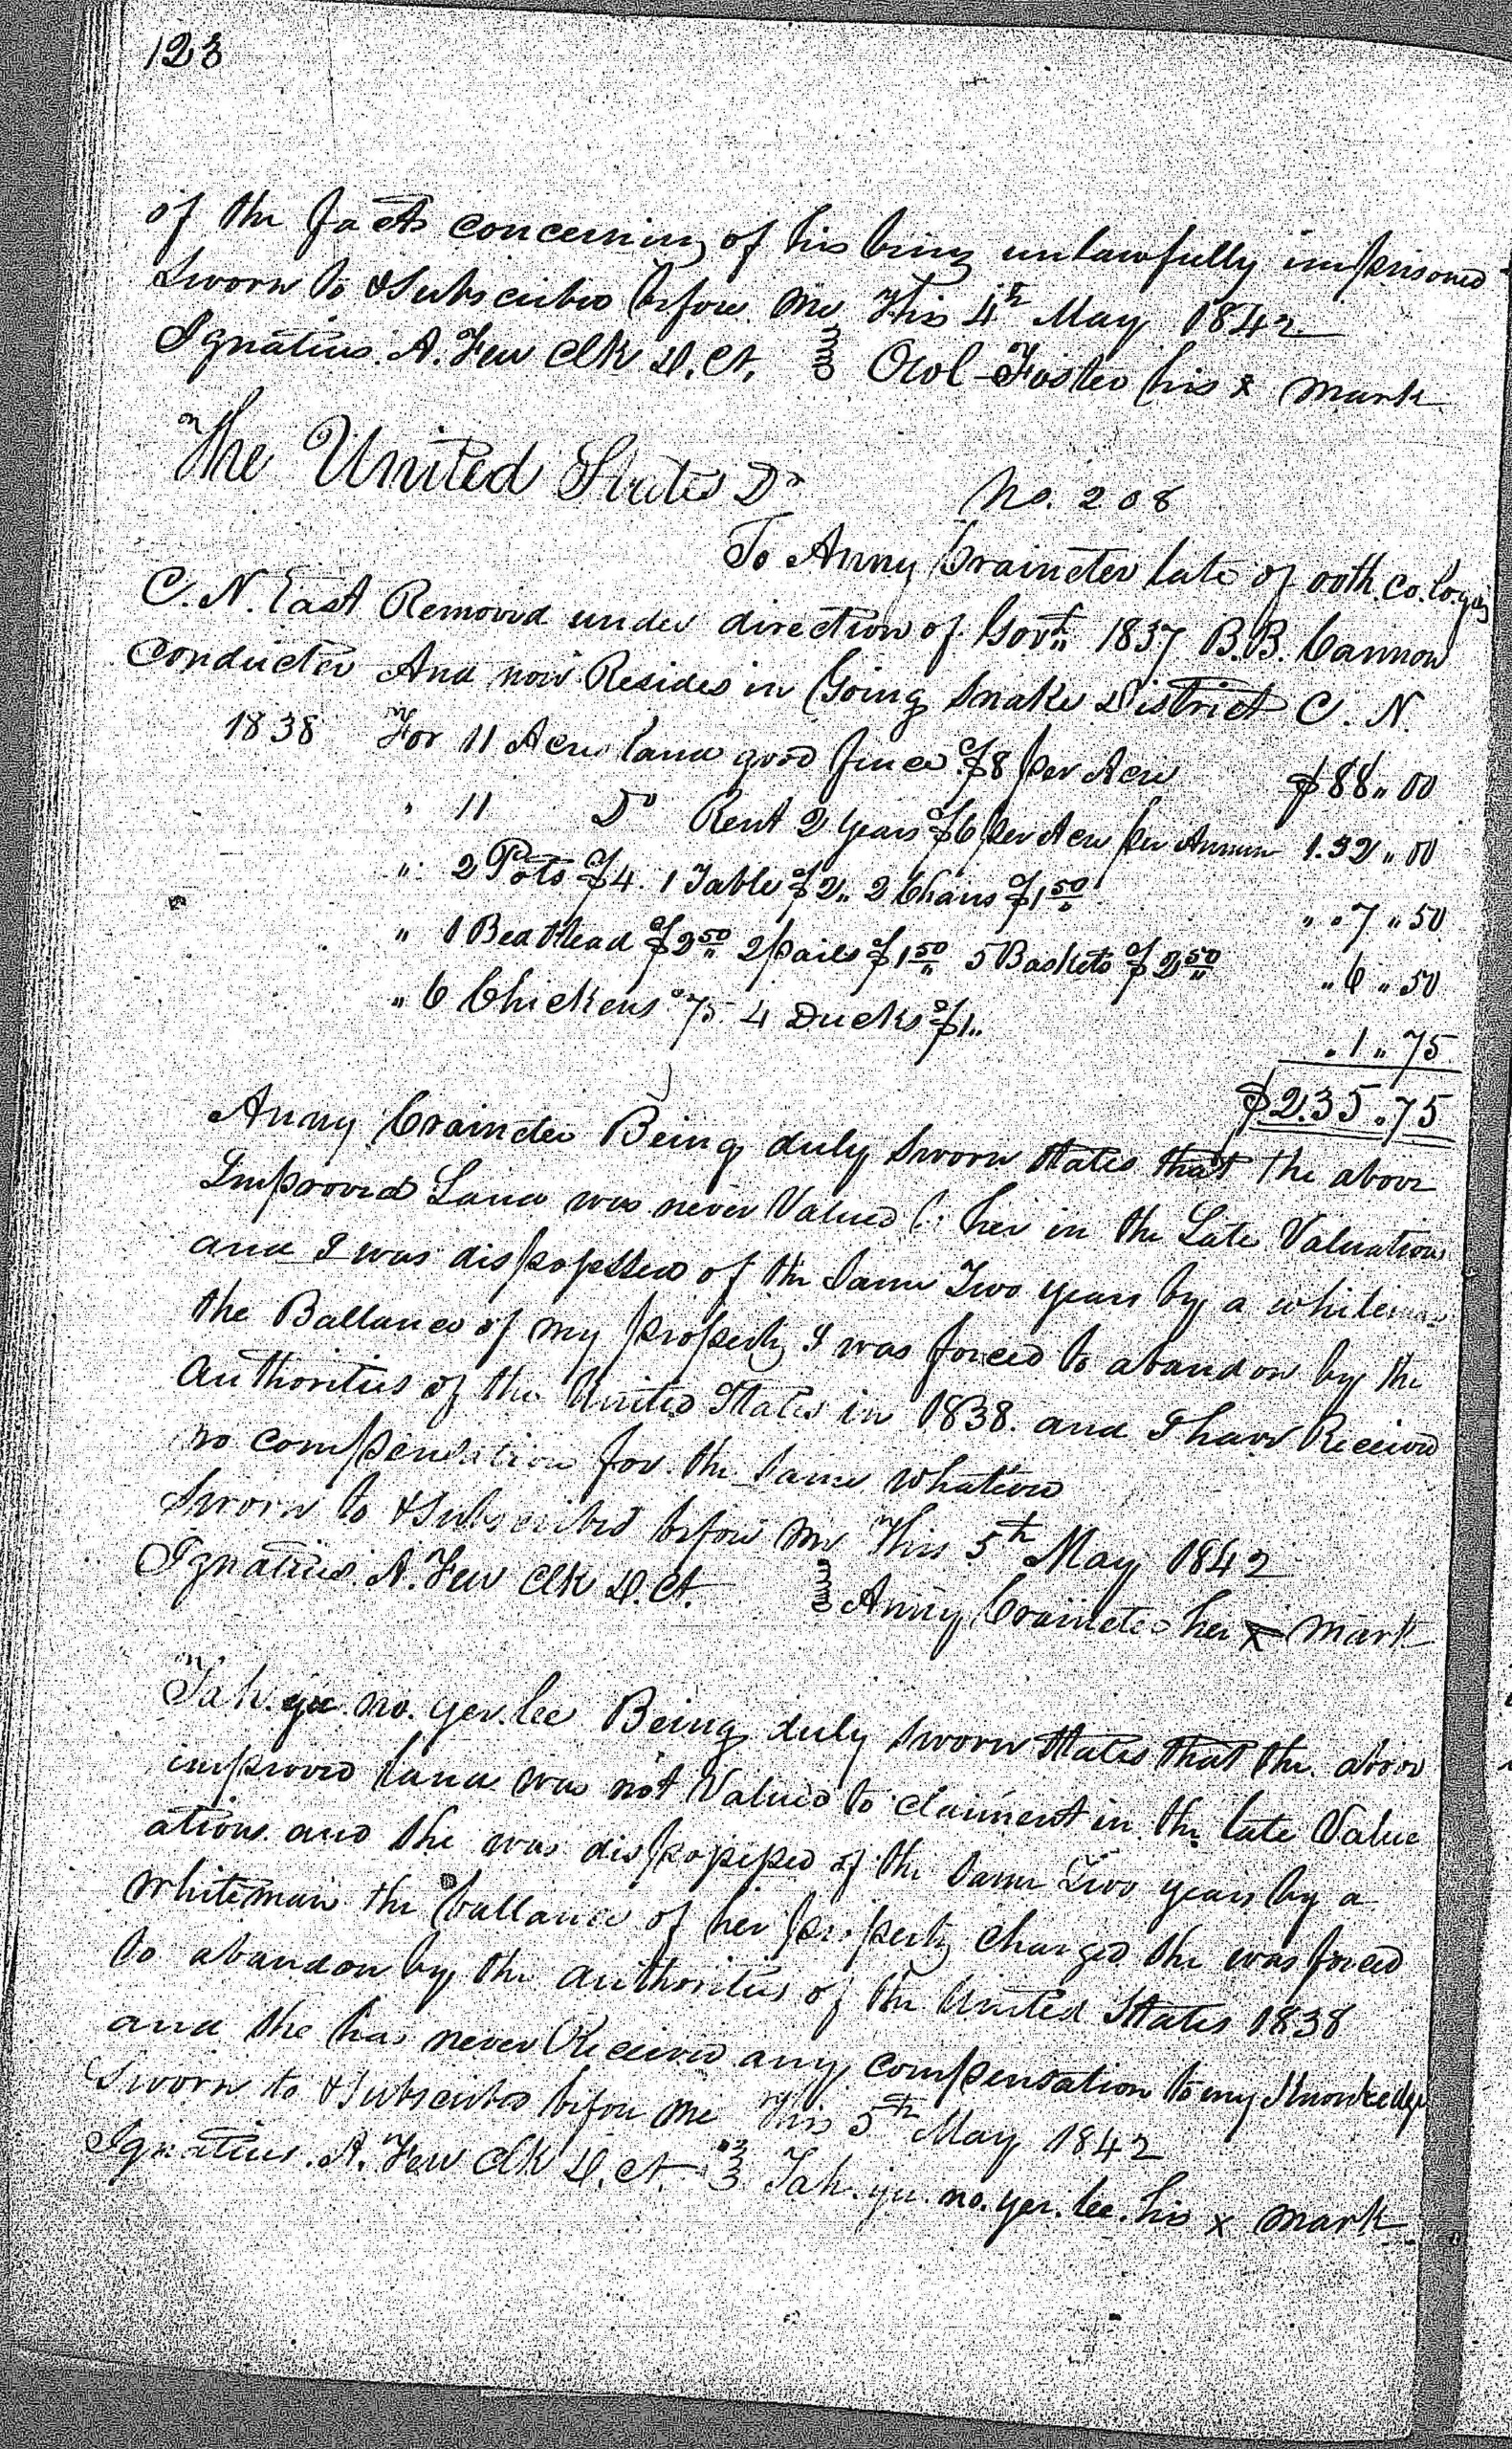 123
of the facts concerning of his being unlawfully imprisoned
Sworn to & Subscribed before me This 4th May 1842
Ignatius. A. Few Clk D. Ct. Owl-Foster his x mark
The United States Dr No. 208
To Anny Craincter late of ooth.co.lo.gy
C. N. East Removed under direction of Govt. 1837 B. B. Cannon
Conductor And now Resides in Going Snake District C. N.
1838 For 11 Acres land good fince $8 per Acre $88.. 00
" 11 Do Rent 2 years $6 per Acre per Annum 1.32.. 00
" 2 Pots $4. 1 Table $2.. 2 Chairs $1 50 " " 7 " 50
" 1 Bedstead $2 50 2 pails $1 50 5 Baskets $2 50 " 6 " 50
" 6 Chickens 75 4 Ducks $1.. " 1 " 75
$2.35.75
Anny Craincter Being duly sworn states that the above
Improved Land was never Valued to her in the Late Valuation
and I was dispossessed of the same Two years by a whiteman
the Ballance of my property I was forced to abandon by the
authorities of the United States in 1838. and I have Received
no compensation for the same whatever
Sworn to & Subscribed before me This 5th May 1842
Ignatius. A. Few Clk D. Ct. Anny Craincter her x mark
Tah. yu. no. yer. lee Being duly sworn states that the above
improved land was not Valued to claiment in the late Value
ations and she was dispossessed of the same Two years by a
whiteman the ballance of her property charged she was forced
to abandon by the authorities of the United States 1838
and she has never Received any compensation to my knowledge
Sworn to & Subscribed before me This 5th May 1842
Ignatius. A. Few Clk D. Ct. Tah. yu. no. yer. lee. his x mark